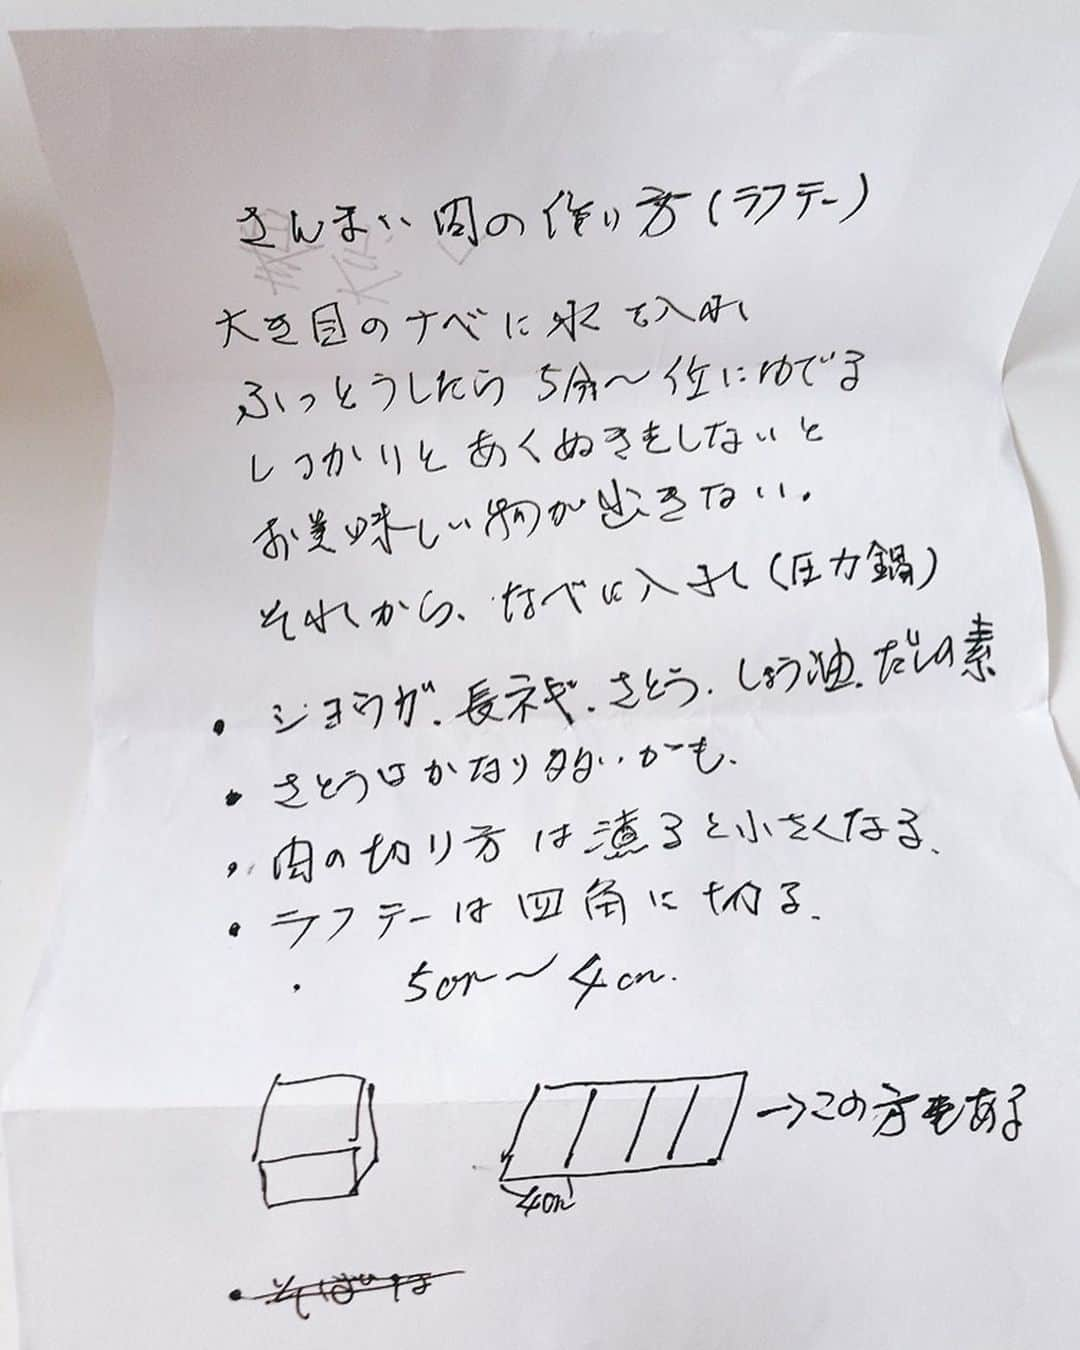 さんまい肉の作り方(ラフテー)
大き目のナベに水を入れ
ふっとうしたら5分〜位にゆでる
しっかりとあくぬきをしないと
お美味しい物が出きない。
それから、なべに入れて(圧力鍋)
・ショウガ、長ネギ、さとう、しょう油、だしの素
・さとうはかなり多いかも、
・肉の切り方は煮ると小さくなる、
・ラフテーは四角に切る、
・5cm〜4cm.
→この方もある
4cm
・そばは